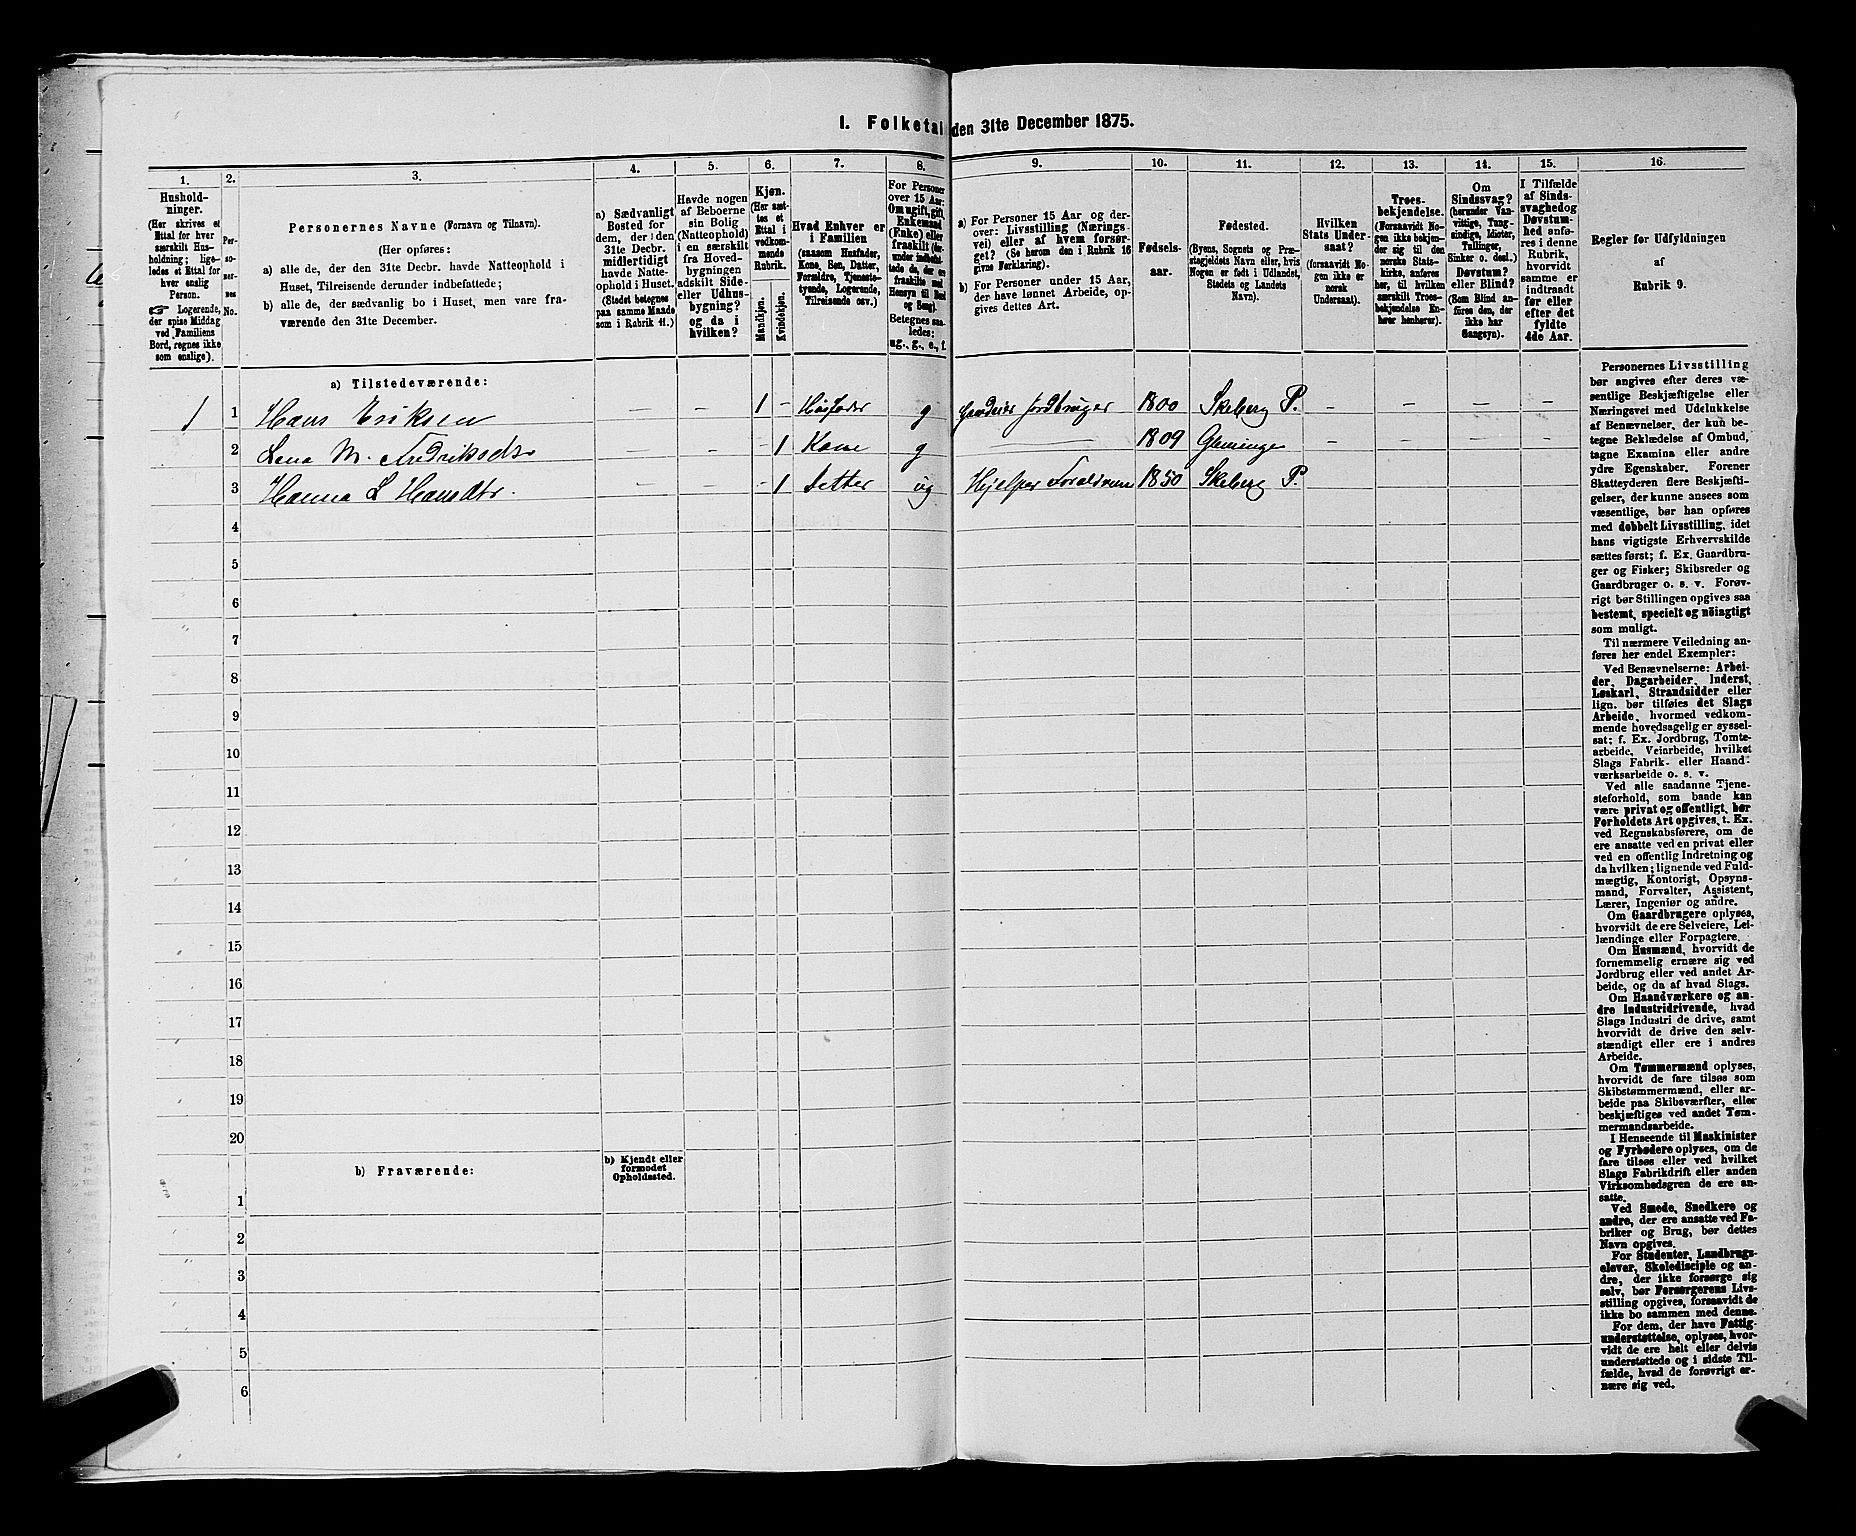 I. Folketal den 31te December 1875.
1. 2. 3. 4. 5. 6. 7. 8. 9. 10. 11. 12. 13. 14. 15. 16.
Hushold-
ninger.
(Her skrives et
Ettal for hver
særskilt Hus-
holdning; lige-
ledes et Ettal for
hver enslig
Person.
☞ Logerende,
der spise Middag
ved Familiens
Bord, regnes ikke
som enslige).
Per-
so-
ner-
nes
No.
Personernes Navne (Fornavn og Tilnavn).
(Her opføres:
a) alle de, der den 31te Decbr. havde Natteophold i
Huset, Tilreisende derunder indbefattede;
b) alle de, der sædvanlig bo i Huset, men vare fra-
værende den 31te December.
a) Sædvanligt
Bosted for
dem, der i den
31te Decbr.
midlertidigt
havde Natte-
ophold i Huset.
(Stedet betegnes
paa samme Maade
som i Rubrik 11.)
Havde nogen
af Beboerne
sin Bolig
(Natteophold)
i en særskilt
fra Hoved-
bygningen
adskilt Side-
eller Udhus-
bygning?
og da i
hvilken?
Kjøn.
(Her sæt-
tes et
Ettal i
vedkom-
mende
Rubrik.
Mandkjøn.
Kvindekjøn.
Hvad Enhver er
i Familien
(saasom Husfader,
Kone, Søn, Datter,
Forældre, Tjeneste-
tyende, Logerende,
Tilreisende osv.)
For Personer
over 15 Aar:
Om ugift, gift,
Enkemand
(Enke) eller
fraskilt (der-
under indbefat-
tede de, der ere
fraskilte med
Hensyn til Bord
og Seng).
Betegnes saa-
ledes:
ug., g., e., f.
a) For Personer 15 Aar og der-
over: Livsstilling (Nærings-
vei) eller af hvem forsør-
get? (Se herom den i Rubrik 16
givne Forklaring).
b) For Personer under 15 Aar,
der have lønnet Arbeide, op-
gives dettes Art.
Fødsels-
aar.
Fødested.
(Byens, Sognets og Præ-
stegjeldets Navn eller, hvis
Nogen er født i Udlandet,
Stedets og Landets
Navn).
Hvilken
Stats Under-
saat?
(forsaavidt No-
gen ikke er
norsk
Undersaat).
Troes-
bekjendelse.
(Forsaavidt No-
gen ikke bekjen-
der sig til den
norske Stats-
kirke, anføres
her, til hvilken
særskilt Troes-
bekjendelse En-
hver henhører).
Om
Sindssvag?
(herunder Van-
vittige, Tung-
sindige, Idioter,
Tullinger,
Sinker o. desl.)
Døvstum?
eller Blind?
(Som Blind an-
føres den, der
ikke har
Gangsyn).
I Tilfælde
af Sinds-
svaghed og
Døvstum-
hed anfø-
res i denne
Rubrik,
hvorvidt
samme er
indtraadt
før eller
efter det
fyldte
4de Aar.
Regler for Udfyldningen
af
Rubrik 9.
a) Tilstedeværende:
1 1 Hans Eriksen — — 1 - Husfader g jordbruger 1800 Skeberg P. - - - -
2 Lena M. — — - 1 Kone g — 1809 Glemminge - - - -
3 Hanna L Hansdtr. - 1 datter ug Hjelper Foraldrene 1850 Skeberg P.
4
5
6
7
8
9
10
11
12
13
14
15
16
17
18
19
20
b) Fraværende:
b) Kjendt eller
formodet
Opholdssted.
1
2
3
4
5
6
Personernes Livsstilling
bør angives efter deres væ-
sentlige Beskjæftigelse eller
Næringsvei med Udelukkelse
af Benævnelser, der kun be-
tegne Beklædelse af Ombud,
tagne Examina eller andre
ydre Egenskaber. Forener
Skatteyderen flere Beskjæfti-
gelser, der kunne ansees som
væsentlige, bør han opføres
med dobbelt Livsstilling, idet
hans vigtigste Erhvervskilde
sættes først; f. Ex. Gaardbru-
ger og Fisker; Skibsreder og
Gaardbruger o. s. v. Forøv-
rigt bør Stillingen opgives saa
bestemt, specielt og nöiagtigt
som muligt.
Til nærmere Veiledning an-
føres her endel Exempler:
Ved Benævnelserne: Arbei-
der, Dagarbeider, Inderst,
Løskarl, Strandsidder eller
lign. bør tilføies det Slags
Arbeide, hvormed vedkom-
mende hovedsagelig er syssel-
sat; f. Ex. Jordbrug, Tomte-
arbeide, Veiarbeide, hvilket
Slags Fabrik- eller Haand-
værksarbeide o. s. v.
Ved alle saadanne Tjene-
steforhold, som baade kan
være privat og offentligt, bør
Forholdets Art opgives, t. Ex.
ved Regnskabsførere, om de
ere ansatte ved en privat eller
ved en offentlig Indretning og
da hvilken; lignende ved Fuld-
mægtig, Kontorist, Opsyns-
mand, Forvalter, Assistent,
Lærer, Ingeniør og andre.
Om Gaardbrugere oplyses,
hvorvidt de ere Selveiere, Lei-
lændinge eller Forpagtere.
Om Husmænd, hvorvidt de
fornemmelig ernære sig ved
Jordbrug eller ved andet Ar-
beide, og da af hvad Slags.
Om Haandværkere og an-
dre Industridrivende, hvad
Slags Industri de drive, samt
hvorvidt de drive den selv-
stændigt eller ere i andres
Arbeide.
Om Tømmermænd oplyses,
hvorvidt de fare tilsøs som
Skibstømmermænd, eller ar-
beide paa Skibsværfter, eller
beskjæftiges ved andet Tøm-
mermandsarbeide.
I Henseende til Maskinister
og Fyrbødere oplyses, om de
fare tilsøs eller ved hvilket
Slags Fabrikdrift eller anden
Virksomhedsgren de ere an-
satte.
Ved Smede, Snedkere og
andre, der ere ansatte ved Fa-
briker og Brug, bør dettes
Navn opgives.
For Studenter, Landbrugs-
elever, Skoledisciple og an-
dre, der ikke forsørge sig
selv, bør Forsørgerens Livs-
stilling opgives, forsaavidt de
ikke bo sammen med denne.
For dem, der have Fattig-
understøttelse, oplyses, hvor-
vidt de ere helt eller delvis
understøttede og i sidste Til-
fælde, hvad de forøvrigt er-
nære sig ved.